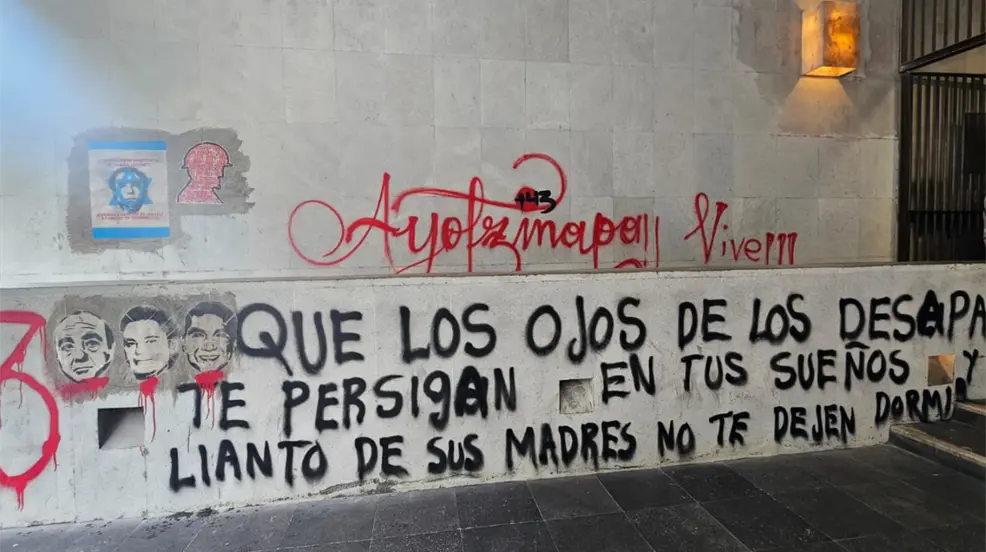 Ayotzinapa!!
+43
Vive!!!
3
QUE LOS OJOS DE LOS DESAPA
TE PERSIGAN EN TUS SUEÑOS Y
LIANTO DE SUS MADRES NO TE DEJEN DORMIR